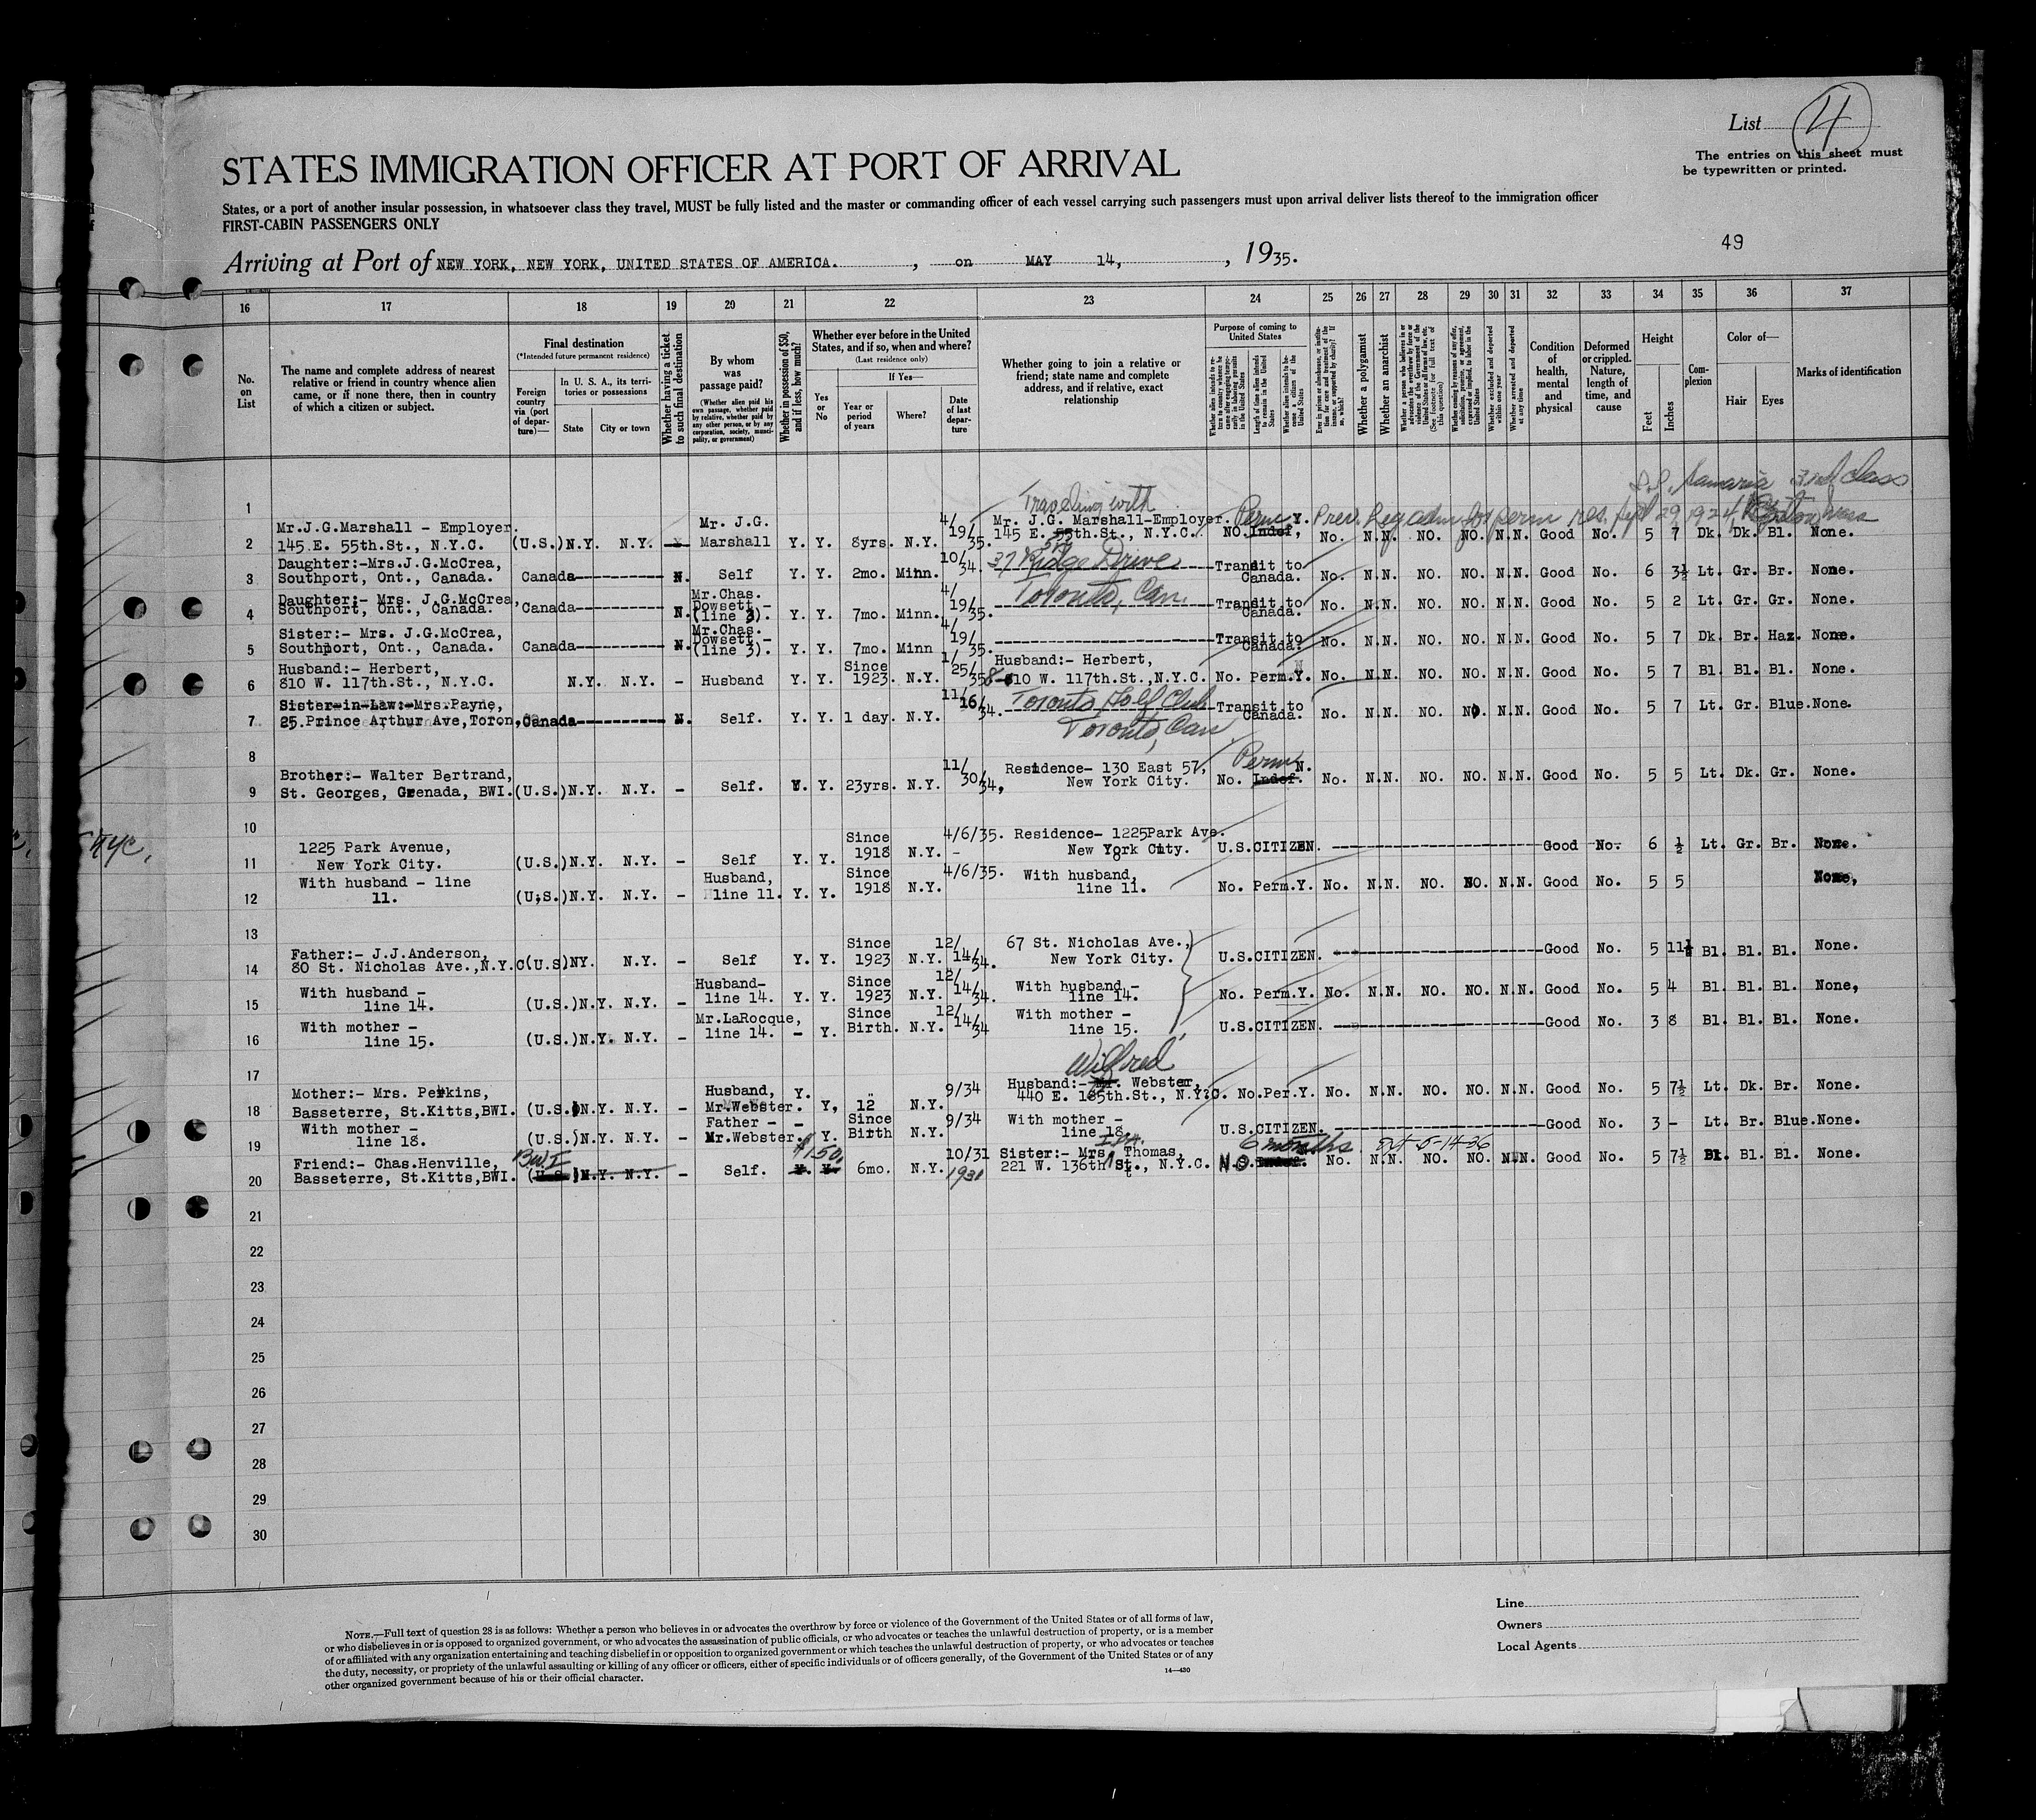 List 4
The entries on this sheet must
be typewritten or printed.
STATES IMMIGRATION OFFICER AT PORT OF ARRIVAL
States, or a port of another insular possession, in whatsoever class they travel, MUST be fully listed and the master or commanding officer of each vessel carrying such passengers must upon arrival deliver lists thereof to the immigration officer
FIRST-CABIN PASSENGERS ONLY
49
Arriving at Port of NEW YORK, NEW YORK, UNITED STATES OF AMERICA. , on MAY 14, , 1935.
16 17 18 19 20 21 22 23 24 25 26 27 28 29 30 31 32 33 34 35 36 37
No. on List
The name and complete address of nearest relative or friend in country whence alien came, or if none there, then in country of which a citizen or subject.
Final destination
(*Intended future permanent residence)
Foreign country via (port of departure)—
In U. S. A., its territories or possessions
State City or town
Whether having a ticket to such final destination
By whom was passage paid?
(Whether alien paid his own passage, whether paid by relative, whether paid by any other person, or by any corporation, society, municipality, or government)
Whether in possession of $50, and if less, how much?
Whether ever before in the United States, and if so, when and where?
(Last residence only)
Yes or No
If Yes—
Year or period of years
Where?
Date of last departure
Whether going to join a relative or friend; state name and complete address, and if relative, exact relationship
Purpose of coming to United States
Length of time alien intends to remain in the United States
Whether alien intends to become a citizen of the United States
Whether a polygamist
Whether an anarchist
Whether excluded and deported within one year
Whether arrested and deported at any time
Condition of health, mental and physical
Deformed or crippled. Nature, length of time, and cause
Height
Feet Inches
Complexion
Color of—
Hair Eyes
Marks of identification
1
S.S. Samaria 3rd class
Traveling with
Perm Prev. Leg adm for perm res. Sept 29, 1924, Boston, Mass
2 Mr.J.G.Marshall - Employer. 145 E. 55th.St., N.Y.C. (U.S.)N.Y. N.Y. Mr. J.G. Marshall Y. Y. 8yrs. N.Y. 4/19/35. Mr. J.G. Marshall-Employer. 145 E. 55th.St., N.Y.C. NO. Indef, Y. No. N.N. NO. NO. N.N. Good No. 5 7 Dk. Dk. Bl. None.
3 Daughter:-Mrs.J.G.McCrea, Southport, Ont., Canada. Canada----------- N. Self Y. Y. 2mo. Minn. 10/34. 37 Ridge Drive Transit to Canada. No. N.N. NO. NO. N.N. Good No. 6 3½ Lt. Gr. Br. None.
4 Daughter:- Mrs. J.G.McCrea, Southport, Ont., Canada. Canada----------- N. Mr.Chas. Dowsett - (line 3). Y. Y. 7mo. Minn. 4/19/35. Toronto, Can. Transit to Canada. No. N.N. NO. NO. N.N. Good No. 5 2 Lt. Gr. Gr. None.
5 Sister:- Mrs. J.G.McCrea, Southport, Ont., Canada. Canada----------- N. Mr.Chas. Dowsett - (line 3). Y. Y. 7mo. Minn 4/19/35. Transit to Canada. No. N.N. NO. NO. N.N. Good No. 5 7 Dk. Br. Haz. None.
6 Husband:- Herbert, 810 W. 117th.St., N.Y.C. N.Y. N.Y. - Husband Y. Y. Since 1923. N.Y. 1/25/35 Husband:- Herbert, 810 W. 117th.St.,N.Y.C. No. Perm.Y. No. N.N. NO. NO. N.N. Good No. 5 7 Bl. Bl. Bl. None.
7 Sister-in-Law:-Mrs.Payne, 25.Prince Arthur Ave,Toron, Canada----------- N. Self. Y. Y. 1 day. N.Y. 11/16/34. Toronto Golf Club Toronto, Can Transit to Canada. No. N.N. NO. NO. N.N. Good No. 5 7 Lt. Gr. Blue. None.
8
9 Brother:- Walter Bertrand, St. Georges, Grenada, BWI. (U.S.)N.Y. N.Y. - Self. Y. Y. 23yrs. N.Y. 11/30/34, Residence- 130 East 57, New York City. No. Perm Indef. N. No. N.N. NO. NO. N.N. Good No. 5 5 Lt. Dk. Gr. None.
10
NYC,
11 1225 Park Avenue, New York City. (U.S.)N.Y. N.Y. - Self Y. Y. Since 1918 N.Y. 4/6/35. Residence- 1225Park Ave. New York City. U.S.CITIZEN. ----------- Good No. 6 ½ Lt. Gr. Br. None.
12 With husband - line 11. (U.S.)N.Y. N.Y. - Husband, line 11. Y. Y. Since 1918 N.Y. 4/6/35. With husband, line 11. No. Perm.Y. No. N.N. NO. NO. N.N. Good No. 5 5 None,
13
14 Father:- J.J.Anderson, 80 St. Nicholas Ave.,N.Y.C (U.S)NY. N.Y. - Self Y. Y. Since 1923 N.Y. 12/14/34. 67 St. Nicholas Ave., New York City. U.S.CITIZEN. ----------- Good No. 5 11½ Bl. Bl. Bl. None.
15 With husband - line 14. (U.S.)N.Y. N.Y. - Husband- line 14. Y. Y. Since 1923 N.Y. 12/14/34. With husband - line 14. No. Perm.Y. No. N.N. NO. NO. N.N. Good No. 5 4 Bl. Bl. Bl. None,
16 With mother - line 15. (U.S.)N.Y. N.Y. - Mr.LaRocque, line 14. - Y. Since Birth. N.Y. 12/14/34 With mother - line 15. U.S.CITIZEN. ----------- Good No. 3 8 Bl. Bl. Bl. None.
17
Wilfred
18 Mother:- Mrs. Perkins, Basseterre, St.Kitts,BWI. (U.S.)N.Y. N.Y. - Husband, Mr.Webster. Y. Y, 12 N.Y. 9/34 Husband:- Mr. Webster, 440 E. 185th.St., N.Y.C. No.Per.Y. No. N.N. NO. NO. N.N. Good No. 5 7½ Lt. Dk. Br. None.
19 With mother - line 18. (U.S.)N.Y. N.Y. - Father - Mr.Webster. - Y. Since Birth N.Y. 9/34 With mother - line 18. U.S.CITIZEN. ----------- Good No. 3 - Lt. Br. Blue. None.
B.W.I $150. 6 months Ext 5-14-36
20 Friend:- Chas.Henville, Basseterre, St.Kitts,BWI. (U.S.)N.Y. N.Y. - Self. 6mo. N.Y. 10/31 1931 Sister:- Mrs. Thomas, 221 W. 136th St., N.Y.C. NO Indef. No. N.N. NO. NO. N.N. Good No. 5 7½ Bl. Bl. Bl. None.
21
22
23
24
25
26
27
28
29
30
NOTE.—Full text of question 28 is as follows: Whether a person who believes in or advocates the overthrow by force or violence of the Government of the United States or of all forms of law,
or who disbelieves in or is opposed to organized government, or who advocates the assassination of public officials, or who advocates or teaches the unlawful destruction of property, or is a member
of or affiliated with any organization entertaining and teaching disbelief in or opposition to organized government or which teaches the unlawful destruction of property, or who advocates or teaches
the duty, necessity, or propriety of the unlawful assaulting or killing of any officer or officers, either of specific individuals or of officers generally, of the Government of the United States or of any
other organized government because of his or their official character.
14—430
Line
Owners
Local Agents